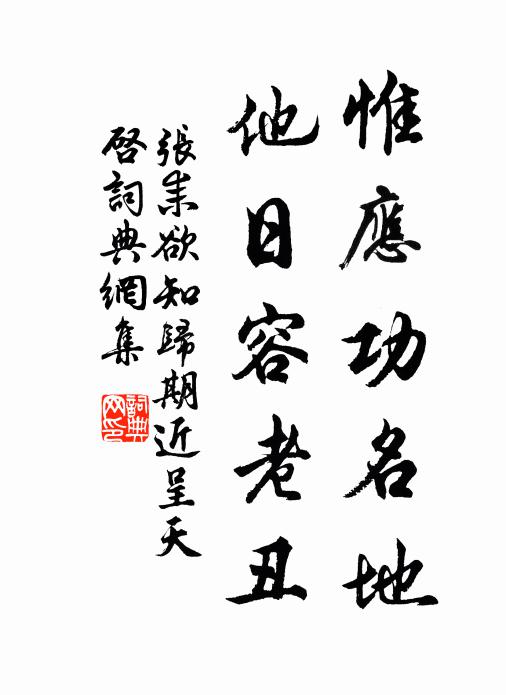 惟應功名地
他日容老丑
張耒欲知歸期近呈天
啓詞典網集
詞典網印